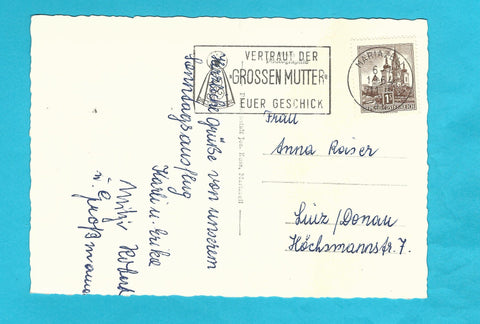 VERTRAUT DER
„GROSSEN MUTTER"
EUER GESCHICK
MARIAZ
Frau
Anna Kaiser
Linz/Donau
Höchsmannstr. 7.
Herzliche Grüße von unserem
Sonntagsausflug
Karli u. Erika
Robert
u. Großmama